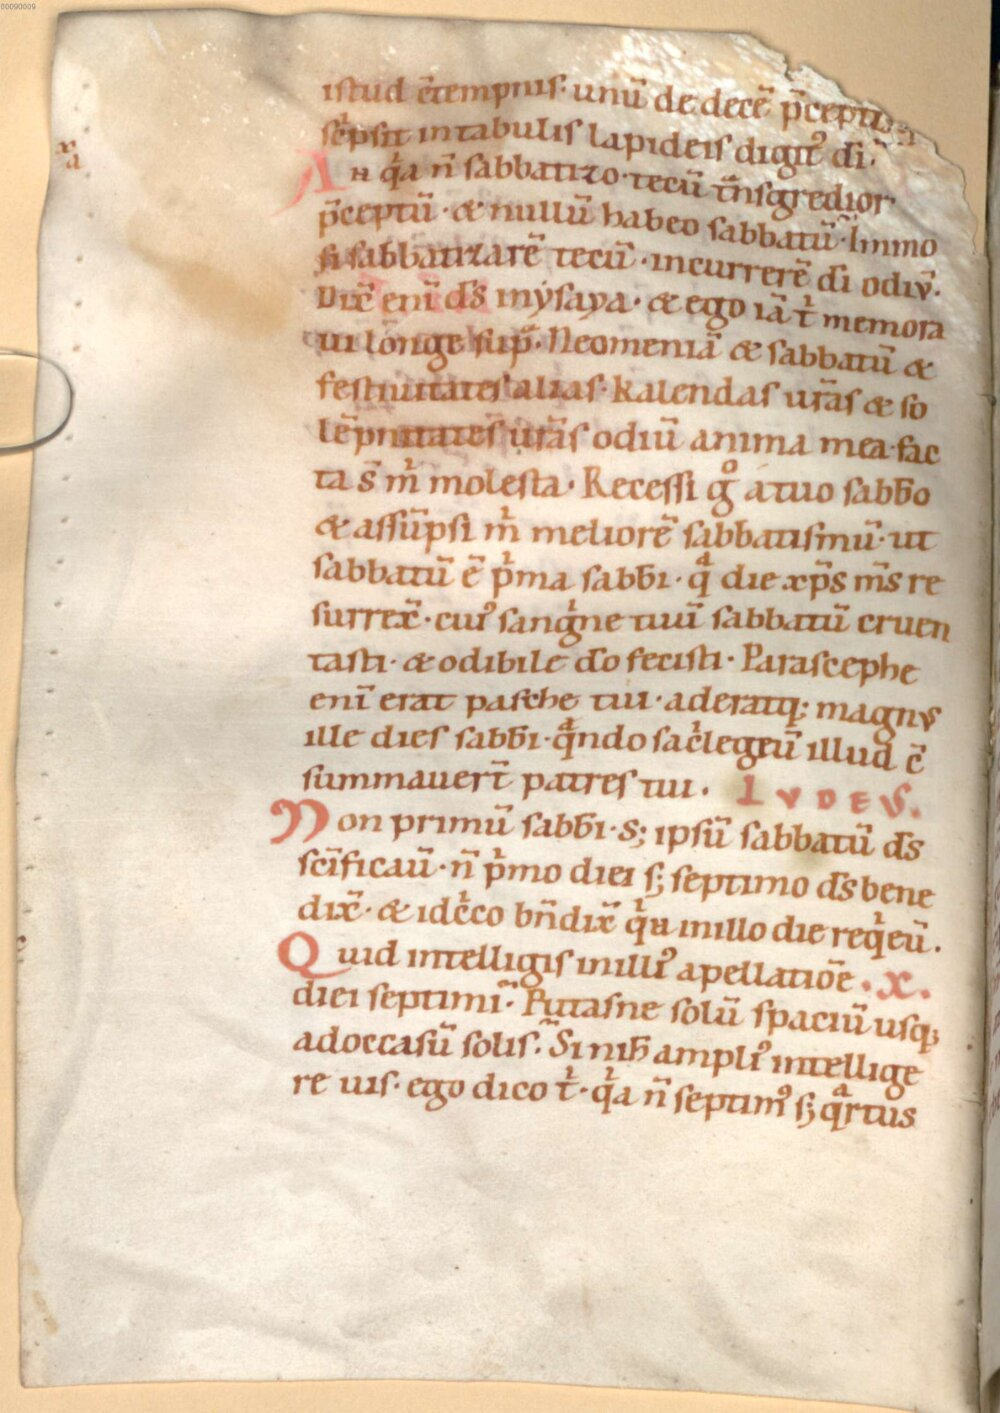 00090009
istud c̄tempnis· unū de decē p̄cept
sc̄psit in tabulis lapideis digit᷒ dī·
x̄a
An q̇a n̄ sabbatizo· tecū t̄nsgredior
p̄ceptū· & nullū habeo sabbatū· Immo
si sabbatizarē tecū· incurrerē dī odiū·
Dix̄ enī d̄s in ysaya· & ego iā t̓ memora
ui longe sup̄· Neomeniā & sabbatū &
festiuitates alias· kalendas ur̄as & so
lēpnitates ur̄as odiū anima mea· fac
ta s̄ m̓ molesta· Recessi gͦ a tuo sabbo
& assūpsi m̓ meliorē sabbatismū· ut
sabbatū ē p̓ma sabbi· qͣ die xp̄s m̄s re
surrex̄· cui᷒ sang̓ne tuū sabbatū cruen
tasti· & odibile d̄o fecisti· Parascephe
enī erat pasche tui· aderatq; magnus
ille dies sabbi· qͣndo sac̓legiū illud c̄
summauer̄t patres tui· IVDEVS.
Non primū sabbi· s; ipsū sabbatū d̄s
sc̄ificauī· n̄ p̓mo diei s; septimo d̄s bene
dix̄· & idc̓co bn̄dix̄ q̓a in illo die req̓eū.
Quid intelligis in illi᷒ apellatiōe .x.
diei septimi· Putasne solū spaciū usq;
ad occasū solis· Si nih̄ ampli᷒ intellige
re uis· ego dico t̓· q̓a n̄ septim᷒ s; qͣrtus